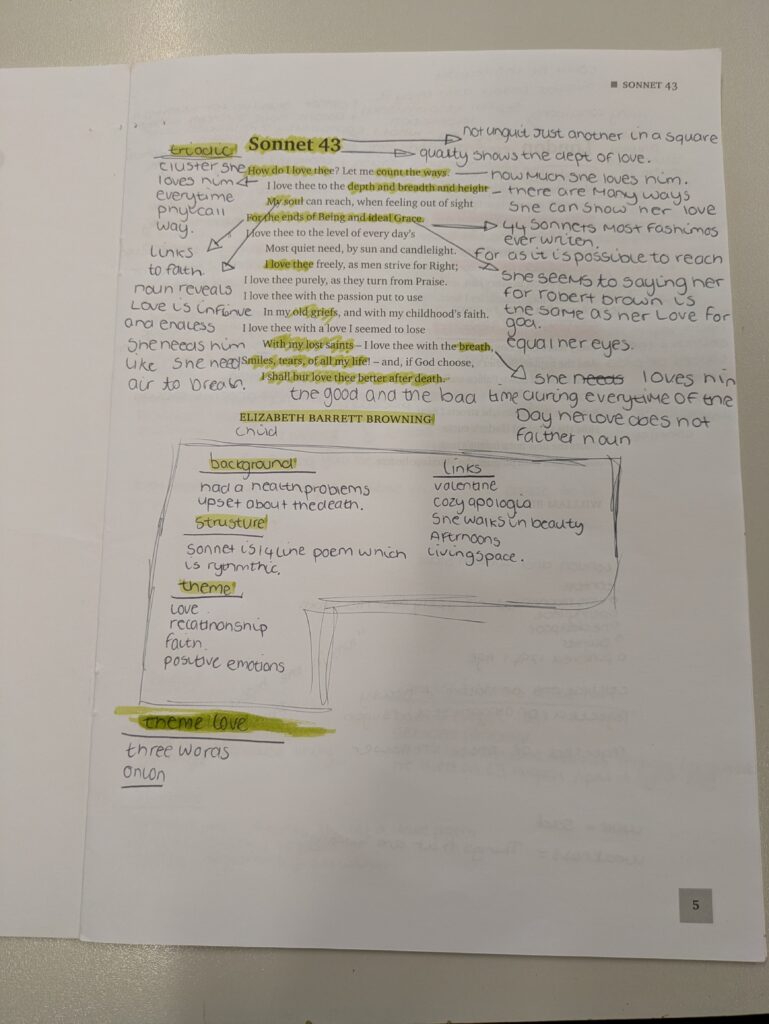 ■ SONNET 43
Sonnet 43
How do I love thee? Let me count the ways.
I love thee to the depth and breadth and height
My soul can reach, when feeling out of sight
For the ends of Being and ideal Grace.
I love thee to the level of every day's
Most quiet need, by sun and candlelight.
I love thee freely, as men strive for Right;
I love thee purely, as they turn from Praise.
I love thee with the passion put to use
In my old griefs, and with my childhood's faith.
I love thee with a love I seemed to lose
With my lost saints – I love thee with the breath,
Smiles, tears, of all my life! – and, if God choose,
I shall but love thee better after death.
ELIZABETH BARRETT BROWNING
triadic
cluster she
loves him
everytime
phycall
way.
links
to faith.
noun reveals
Love is infinve
and endless
she needs him
like she need
air to breath.
not unquit Just another in a square
quality shows the dept of love.
how much she loves him.
there are many ways
she can show her love
44 sonnets most fashimos
ever writen.
For as it is possible to reach
she seems to saying her
for robert brown is
the same as her love for
god.
equal her eyes.
she needs loves him
the good and the bad time during everytime of the
Day her love does not
faither noun
child
background
had a health problems
upset about the death.
structure
sonnet is 14 line poem which
is rythmic.
theme
love
relationship
faith.
positive emotions
Links
valentine
cozy apologia
She walks in beauty
Afternoons
living space.
theme love
three words
onion
5